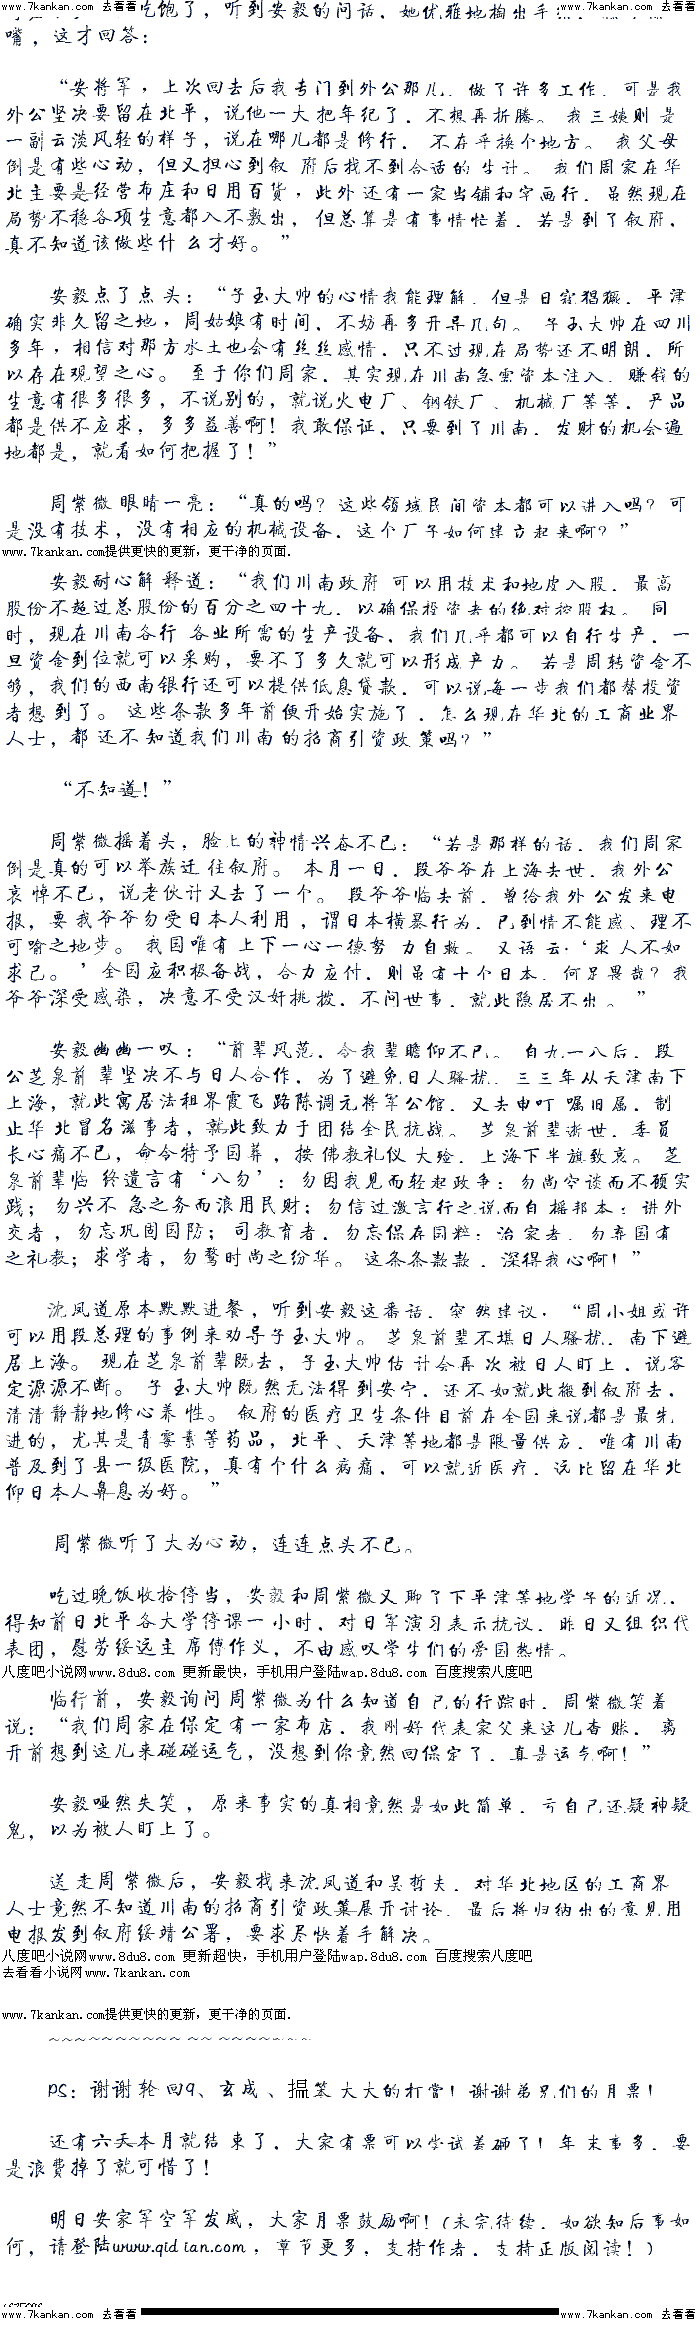 www.7kankan.com 去看看 www.7kankan.com 去看看
吃饱了，听到安毅的问话，她优雅地掏出手
嘴，这才回答：
“安将军，上次回去后我专门到外公那儿，做了许多工作，可是我
外公坚决要留在北平，说他一大把年纪了，不想再折腾。我三姨则是
一副云淡风轻的样子，说在哪儿都是修行，不在乎换个地方。我父母
倒是有些心动，但又担心到叙府后找不到合适的生计。我们周家在华
北主要是经营布庄和日用百货，此外还有一家当铺和字画行，虽然现在
局势不稳各项生意都入不敷出，但总算是有事情忙着，若是到了叙府，
真不知道该做些什么才好。”
安毅点了点头：“子玉大帅的心情我能理解，但是日寇猖獗，平津
确实非久留之地，周姑娘有时间，不妨再多开导几句。子玉大帅在四川
多年，相信对那方水土也会有丝丝感情，只不过现在局势还不明朗，所
以存在观望之心。至于你们周家，其实现在川南急需资本注入，赚钱的
生意有很多很多，不说别的，就说火电厂、钢铁厂、机械厂等等，产品
都是供不应求，多多益善啊！我敢保证，只要到了川南，发财的机会遍
地都是，就看如何把握了！”
周紫微眼睛一亮：“真的吗？这些领域民间资本都可以进入吗？可
是没有技术，没有相应的机械设备，这个厂子如何建立起来啊？”
www.7kankan.com提供更快的更新，更干净的页面.
安毅耐心解释道：“我们川南政府可以用技术和地皮入股，最高
股份不超过总股份的百分之四十九，以确保投资者的绝对控股权。同
时，现在川南各行各业所需的生产设备，我们几乎都可以自行生产，一
旦资金到位就可以采购，要不了多久就可以形成产力。若是周转资金不
够，我们的西南银行还可以提供低息贷款，可以说每一步我们都替投资
者想到了。这些条款多年前便开始实施了，怎么现在华北的工商业界
人士，都还不知道我们川南的招商引资政策吗？”
“不知道！”
周紫微摇着头，脸上的神情兴奋不已：“若是那样的话，我们周家
倒是真的可以举族迁往叙府。本月一日，段爷爷在上海去世，我外公
哀悼不已，说老伙计又去了一个。段爷爷临去前，曾给我外公发来电
报，要我爷爷勿受日本人利用，谓日本横暴行为，已到情不能感、理不
可喻之地步。我国唯有上下一心一德努力自救。又语云：‘求人不如
求己。’全国应积极备战，合力应付，则虽有十个日本，何足畏哉？我
爷爷深受感染，决意不受汉奸挑拨，不问世事，就此隐居不出。”
安毅幽幽一叹：“前辈风范，令我辈瞻仰不已。自九一八后，段
公芝泉前辈坚决不与日人合作，为了避免日人骚扰，三三年从天津南下
上海，就此寓居法租界霞飞路陈调元将军公馆，又去电叮嘱旧属，制
止华北冒名滋事者，就此致力于团结全民抗战。芝泉前辈逝世，委员
长心痛不已，命令特予国葬，按佛教礼仪大殓，上海下半旗致哀。芝
泉前辈临终遗言有‘八勿’：勿因我见而轻起政争；勿尚空谈而不顾实
践；勿兴不急之务而浪用民财；勿信过激言行之说而自摇邦本；讲外
交者，勿忘巩固国防；司教育者，勿忘保存国粹；治家者，勿弃国有
之礼教；求学者，勿骛时尚之纷华。这条条款款，深得我心啊！”
沈凤道原本默默进餐，听到安毅这番话，突然建议：“周小姐或许
可以用段总理的事例来劝导子玉大帅。芝泉前辈不堪日人骚扰，南下避
居上海。现在芝泉前辈既去，子玉大帅估计会再次被日人盯上，说客
定源源不断。子玉大帅既然无法得到安宁，还不如就此搬到叙府去，
清清静静地修心养性。叙府的医疗卫生条件目前在全国来说都是最先
进的，尤其是青霉素等药品，北平、天津等地都是限量供应，唯有川南
普及到了县一级医院，真有个什么病痛，可以就近医疗，远比留在华北
仰日本人鼻息为好。”
周紫微听了大为心动，连连点头不已。
吃过晚饭收拾停当，安毅和周紫微又聊了下平津等地学子的近况，
得知前日北平各大学停课一小时，对日军演习表示抗议，昨日又组织代
表团，慰劳绥远主席傅作义，不由感叹学生们的爱国热情。
八度吧小说网www.8du8.com 更新最快，手机用户登陆wap.8du8.com 百度搜索八度吧
临行前，安毅询问周紫微为什么知道自己的行踪时，周紫微笑着
说：“我们周家在保定有一家布店，我刚好代表家父来这儿查账，离
开前想到这儿来碰碰运气，没想到你竟然回保定了，真是运气啊！”
安毅哑然失笑，原来事实的真相竟然是如此简单，亏自己还疑神疑
鬼，以为被人盯上了。
送走周紫微后，安毅找来沈凤道和吴哲夫，对华北地区的工商界
人士竟然不知道川南的招商引资政策展开讨论，最后将归纳出的意见用
电报发到叙府绥靖公署，要求尽快着手解决。
八度吧小说网www.8du8.com 更新超快，手机用户登陆wap.8du8.com 百度搜索八度吧
去看看小说网www.7kankan.com
www.7kankan.com提供更快的更新，更干净的页面.
~~~~~~~~~~ ~~ ~~~~~~~
PS：谢谢轮回9、玄成、揾笨大大的打赏！谢谢弟兄们的月票！
还有六天本月就结束了，大家有票可以尝试着砸了！年末事多，要
是浪费掉了就可惜了！
明日安家军空军发威，大家月票鼓励啊！(未完待续，如欲知后事如
何，请登陆www.qidian.com，章节更多，支持作者，支持正版阅读！)
www.7kankan.com 去看看 www.7kankan.com 去看看